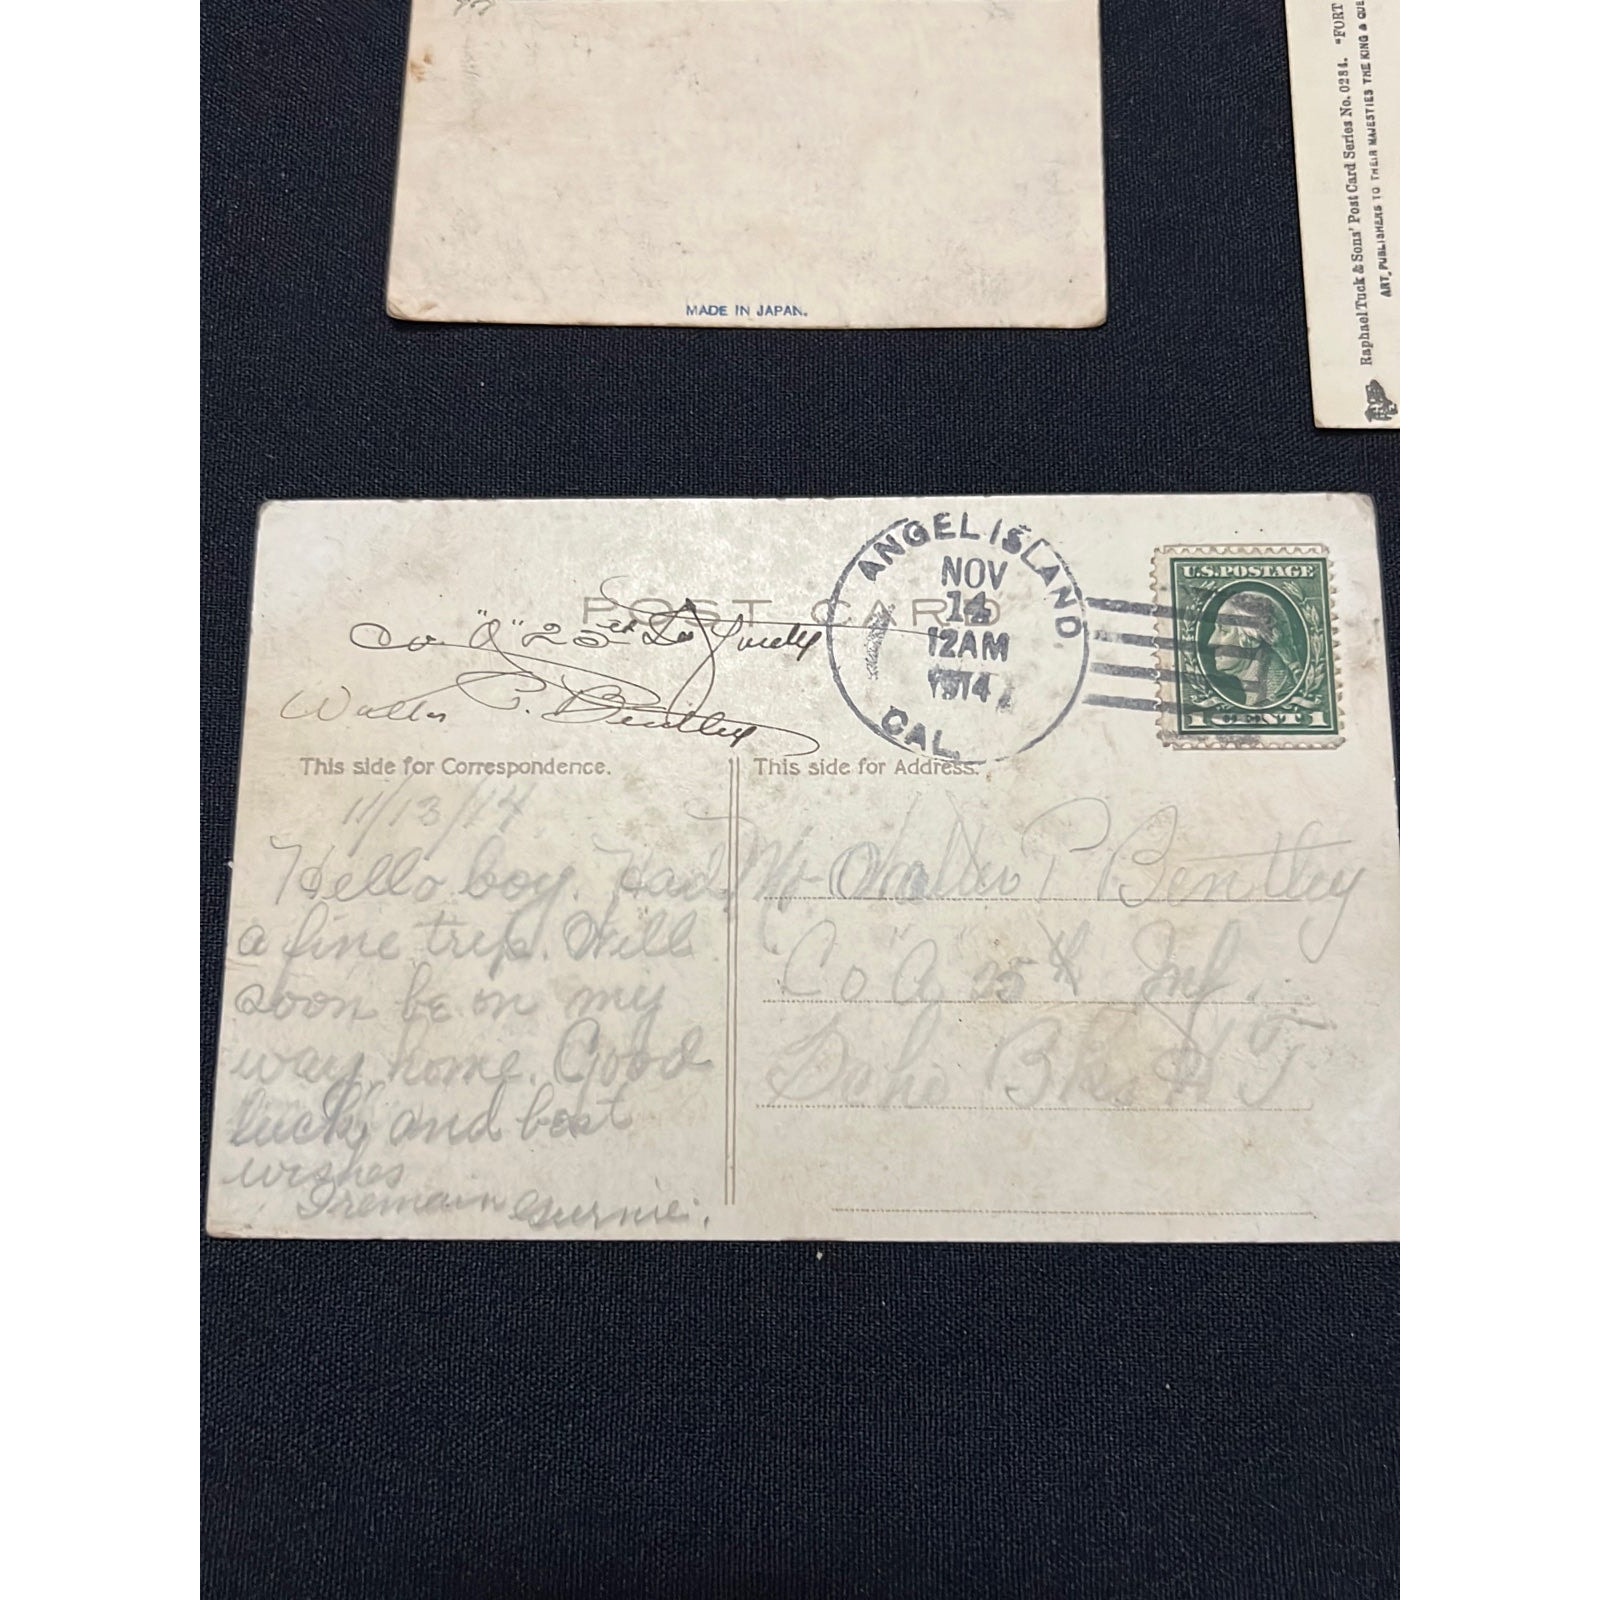 MADE IN JAPAN.
Raphael Tuck & Sons' Post Card Series No. 0284. "FORT
ART PUBLISHERS TO THEIR MAJESTIES THE KING & QUE
POST CARD
Co "A" 25th Infantry
Walter P. Bentley
ANGEL ISLAND
NOV
14
12AM
1914
CAL.
U.S. POSTAGE
1 CENT 1
This side for Correspondence.
11/13/14
Hello boy. Had
a fine trip. Will
soon be on my
way home. Good
luck, and best
wishes
I remain Gurnie.
This side for Address.
Mr Walter P Bentley
Co A 25th Inf.
Bks H T